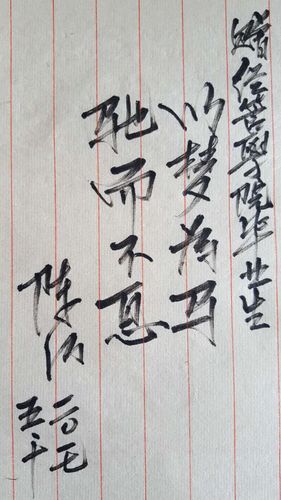 赠经管學院毕业生
以梦为马
驰而不息
陈
二〇一七
五十